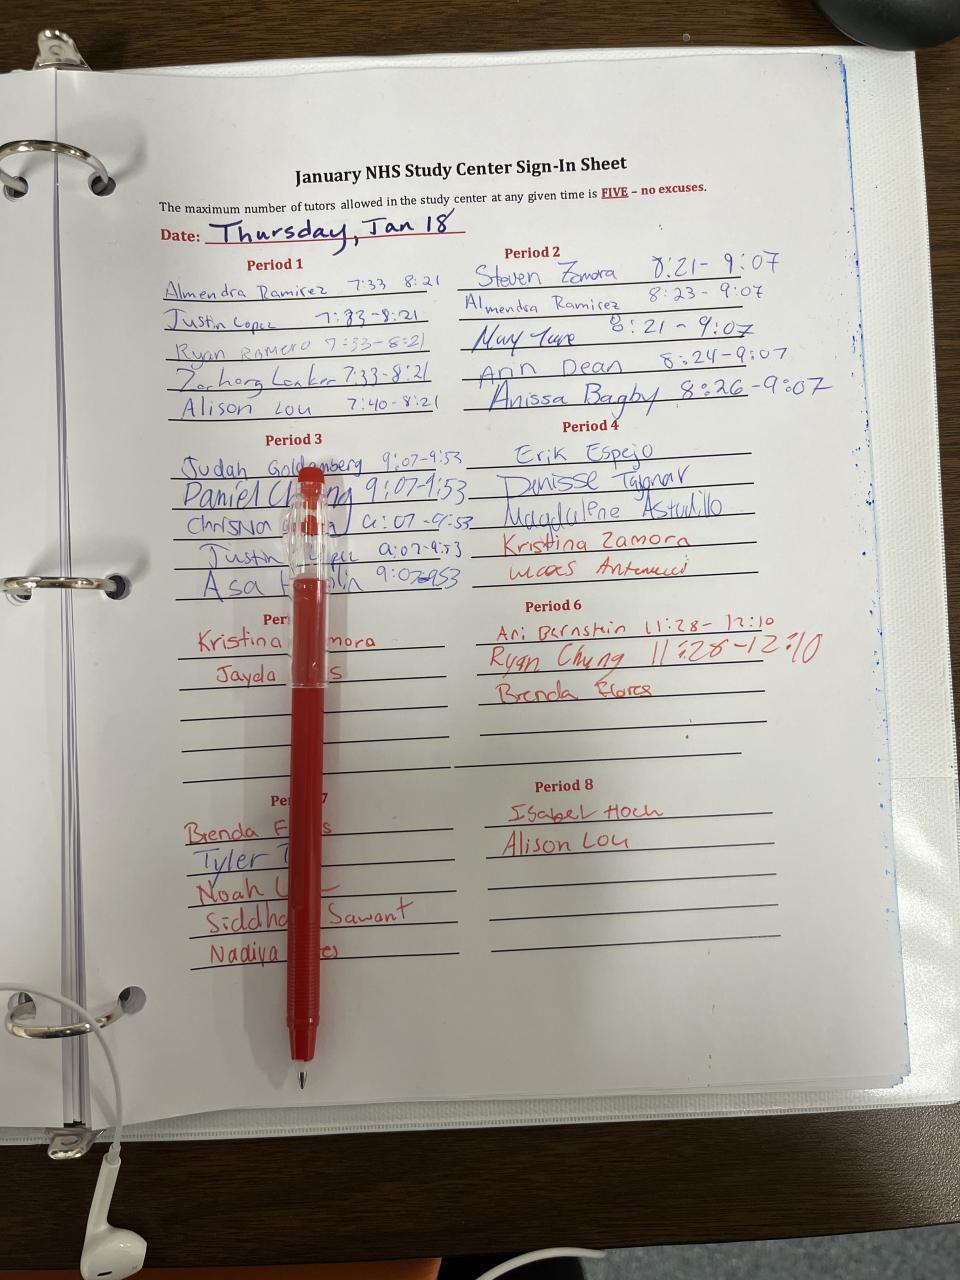 January NHS Study Center Sign-In Sheet
The maximum number of tutors allowed in the study center at any given time is FIVE – no excuses.
Date: Thursday, Jan 18
Period 1
Almendra Ramirez 7:33 8:21
Justin Lopez 7:33-8:21
Ryan Romero 7:33-8:21
7:33-8:21
Alison Lou 7:40-8:21
Period 2
Steven Zamora 8:21- 9:07
Almendra Ramirez 8:23-9:07
8:21-9:07
Ann Dean 8:24-9:07
Anissa Bagby 8:26-9:07
Period 3
Judah Goldemberg 9:07-9:53
Daniel 9:07-9:53
9:07-9:53
Justin 9:07-9:53
Asa 9:07-953
Period 4
Erik Espejo
Denisse
Magdalene Astudillo
Kristina Zamora
Kristina
Jayda
Period 6
Ari Bernstein 11:28-12:10
Ryan Chung 11:28-12:10
Brenda Flores
7
Brenda
Tyler
Noah
Sawant
Nadiya
Period 8
Isabel Hoch
Alison Lou